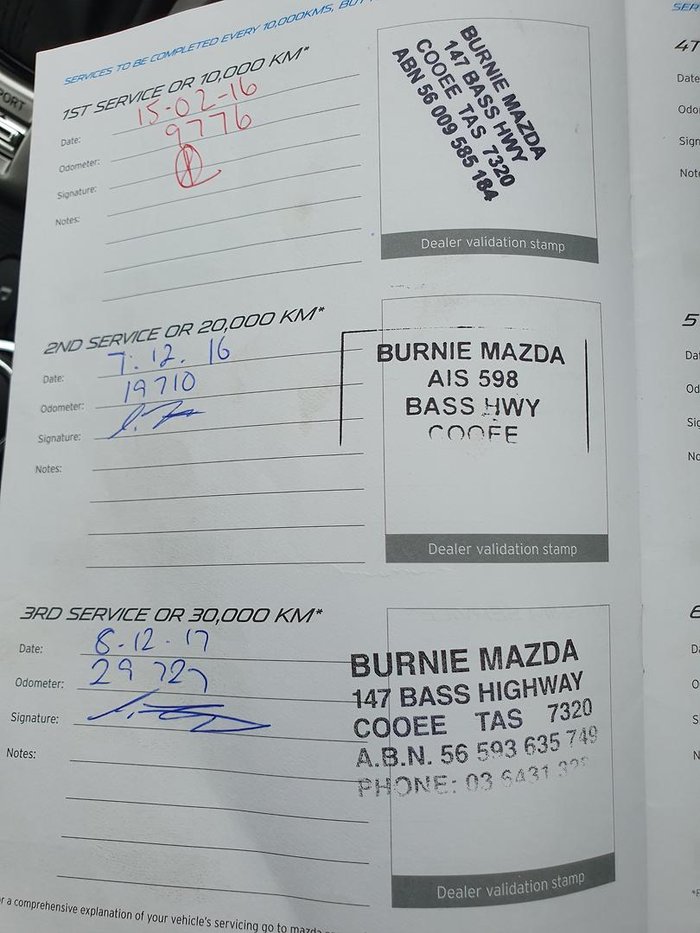 SERVICES TO BE COMPLETED EVERY 10,000KMS,
1ST SERVICE OR 10,000 KM*
Date: 15-02-16
Odometer: 9776
Signature:
Notes:
BURNIE MAZDA
147 BASS HWY
COOEE TAS 7320
ABN 56 009 585 184
Dealer validation stamp
2ND SERVICE OR 20,000 KM*
Date: 7.12.16
Odometer: 19710
Signature:
Notes:
BURNIE MAZDA
AIS 598
BASS HWY
COOEE
Dealer validation stamp
3RD SERVICE OR 30,000 KM*
Date: 8-12-17
Odometer: 29727
Signature:
Notes:
BURNIE MAZDA
147 BASS HIGHWAY
COOEE TAS 7320
A.B.N. 56 593 635 749
PHONE: 03 6431
Dealer validation stamp
r a comprehensive explanation of your vehicle's servicing go to mazda